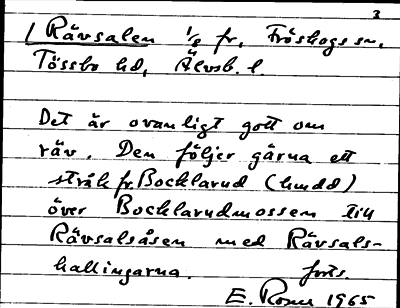 3
Rävsalen 1/8 fr, Fröskogs sn,
Tössbo hd, Älvsb. l.
Det är ovanligt gott om
räv. Den följer gärna ett
stråk fr. Bocklarud (hmdd)
över Bocklarudmossen till
Rävsalsåsen med Rävsals-
hallingarna. forts.
E. 1965